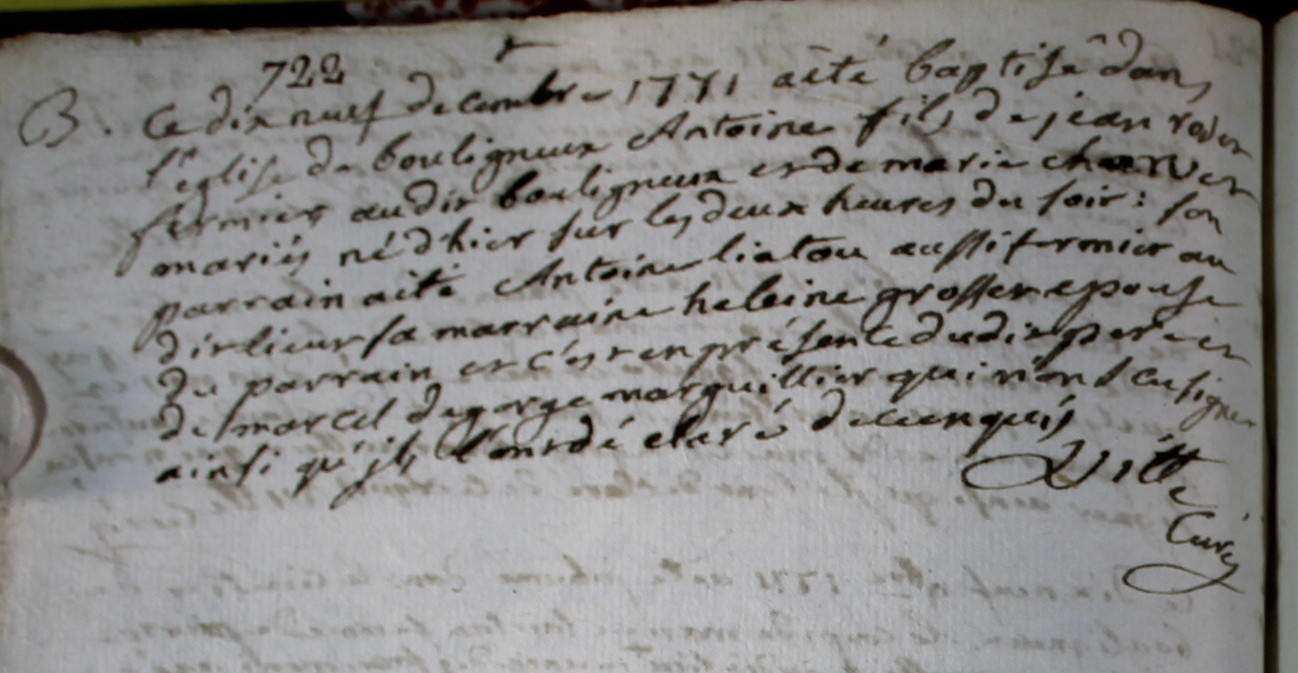 722
B. Ce dix neuf decembre 1771 aété baptisé dans
l'eglise de bouligneux Antoine fils de jean
fermier audit bouligneux et de marie
mariés né d'hier sur les deux heures du soir : son
parrain aété Antoine liatou aussi fermier au
dit lieu sa marraine heleine grosset epouse
du parrain et c'est en présence dudit pere et
de marcel degorge marguillier qui n'ont su signer
ainsi qu'ils l'ont déclaré de ce enquis
Curé